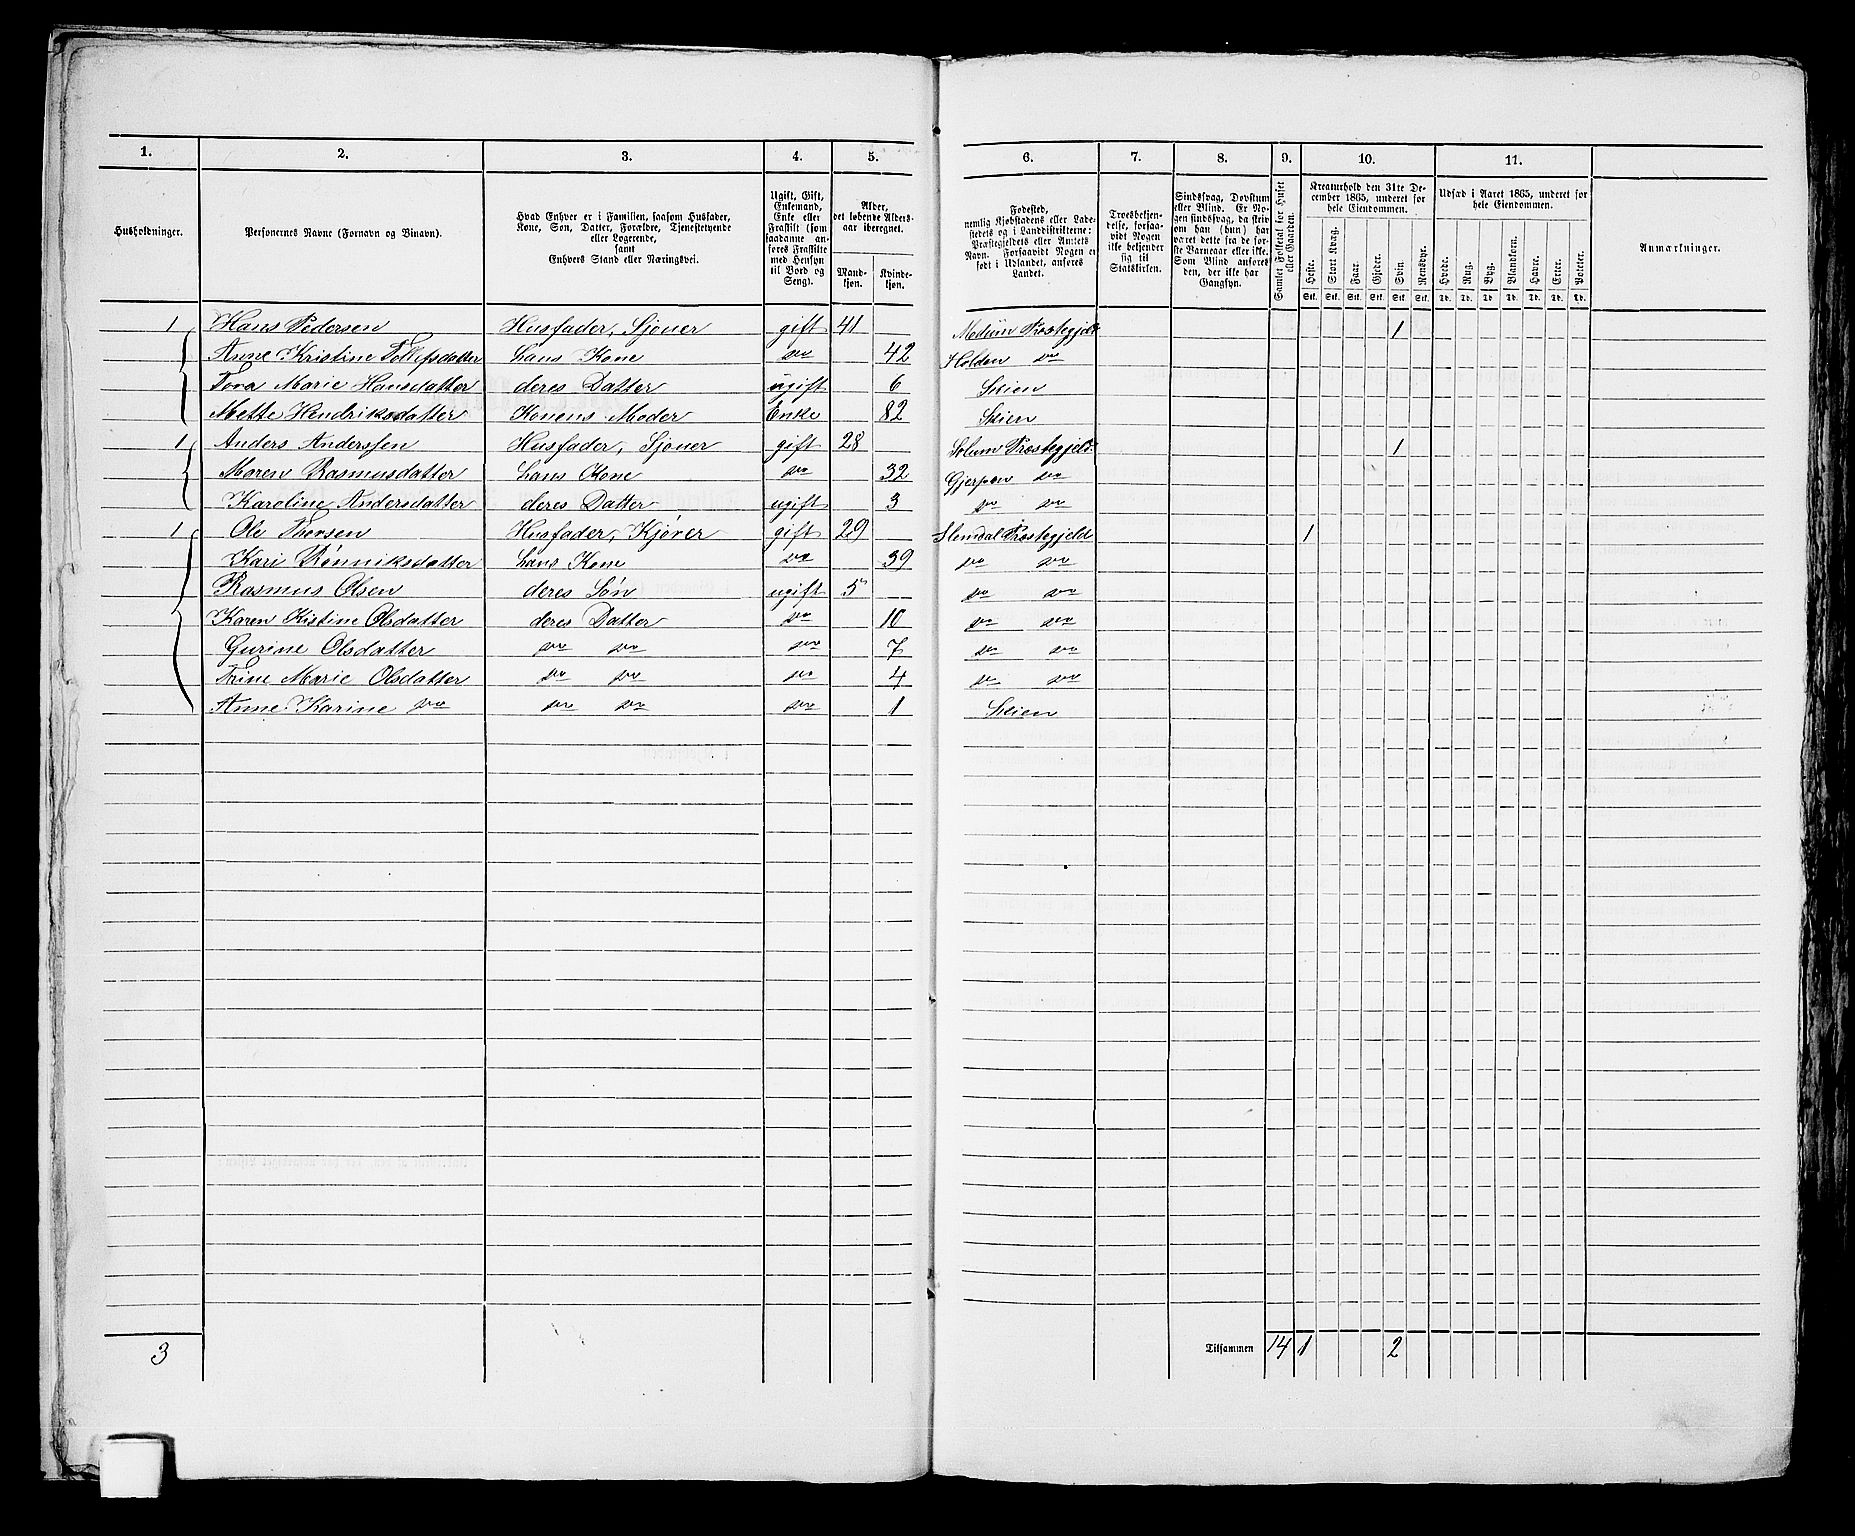 1. 2. 3. 4. 5. 6. 7. 8. 9. 10. 11.
Husholdninger.
Personernes Navne (Fornavn og Binavn).
Hvad Enhver er i Familien, saasom Husfader,
Kone, Søn, Datter, Forældre, Tjenestetyende
eller Logerende,
samt
Enhvers Stand eller Næringsvei.
Ugift, Gift,
Enkemand,
Enke eller
Fraskilt (som
saadanne an-
føres Fraskilte
med Hensyn
til Bord og
Seng).
Alder,
det løbende Alders-
aar iberegnet.
Mand-
kjøn.
Kvinde-
kjøn.
Fødested,
nemlig Kjøbstadens eller Lade-
stedets og i Landdistrikterne:
Præstegjeldets eller Amtets
Navn. Forsaavidt Nogen er
født i Udlandet, anføres
Landet.
Troesbekjen-
delse, forsaa-
vidt Nogen
ikke bekjender
sig til
Statskirken.
Sindssvag, Døvstum
eller Blind. Er No-
gen sindssvag, da skriv
om han (hun) har
været dette fra de før-
ste Barneaar eller ikke.
Som Blind anføres
den, der ikke har
Gangsyn.
Samlet Folketal for Huset
eller Gaarden.
Kreaturhold den 31te De-
cember 1865, underet for
hele Eiendommen.
Heste. Stort Kvæg. Faar. Gjeder. Svin. Rensdyr.
Stk. Stk. Stk. Stk. Stk. Stk.
Udsæd i Aaret 1865, underet for
hele Eiendommen.
Hvede. Rug. Byg. Blandkorn. Havre. Erter. Poteter.
Td. Td. Td. Td. Td. Td. Td.
Anmærkninger.
1 Hans Pedersen Husfader, Sjøuer gift 41 Modum Præstegjeld 1
Anne Kristine Tollefsdatter Hans Kone do 42 Holden do
Tora Marie Hansdatter deres Datter ugift 6 Skien
Mette Hendriksdatter Konens Moder Enke 82 Skien
1 Anders Anderssen Husfader, Sjøuer gift 28 Solum Præstegjeld. 1
Maren Rasmusdatter Hans Kone do 32 Gjerpen do
Karoline Andersdatter deres Datter ugift 3 do do
1 Ole Thorsen Husfader, Kjører gift 29 Slemdal Præstegjeld 1
Kari Rønniksdatter Hans Kone do 39 do do
Rasmus Olsen deres Søn ugift 5 do do
Karen Kistine Olsdatter deres Datter do 10 do do
Gurine Olsdatter do do do 7 do do
Trine Marie Olsdatter do do do 4 do do
Anne Karine do do do do 1 Skien
3 Tilsammen 14 1 2